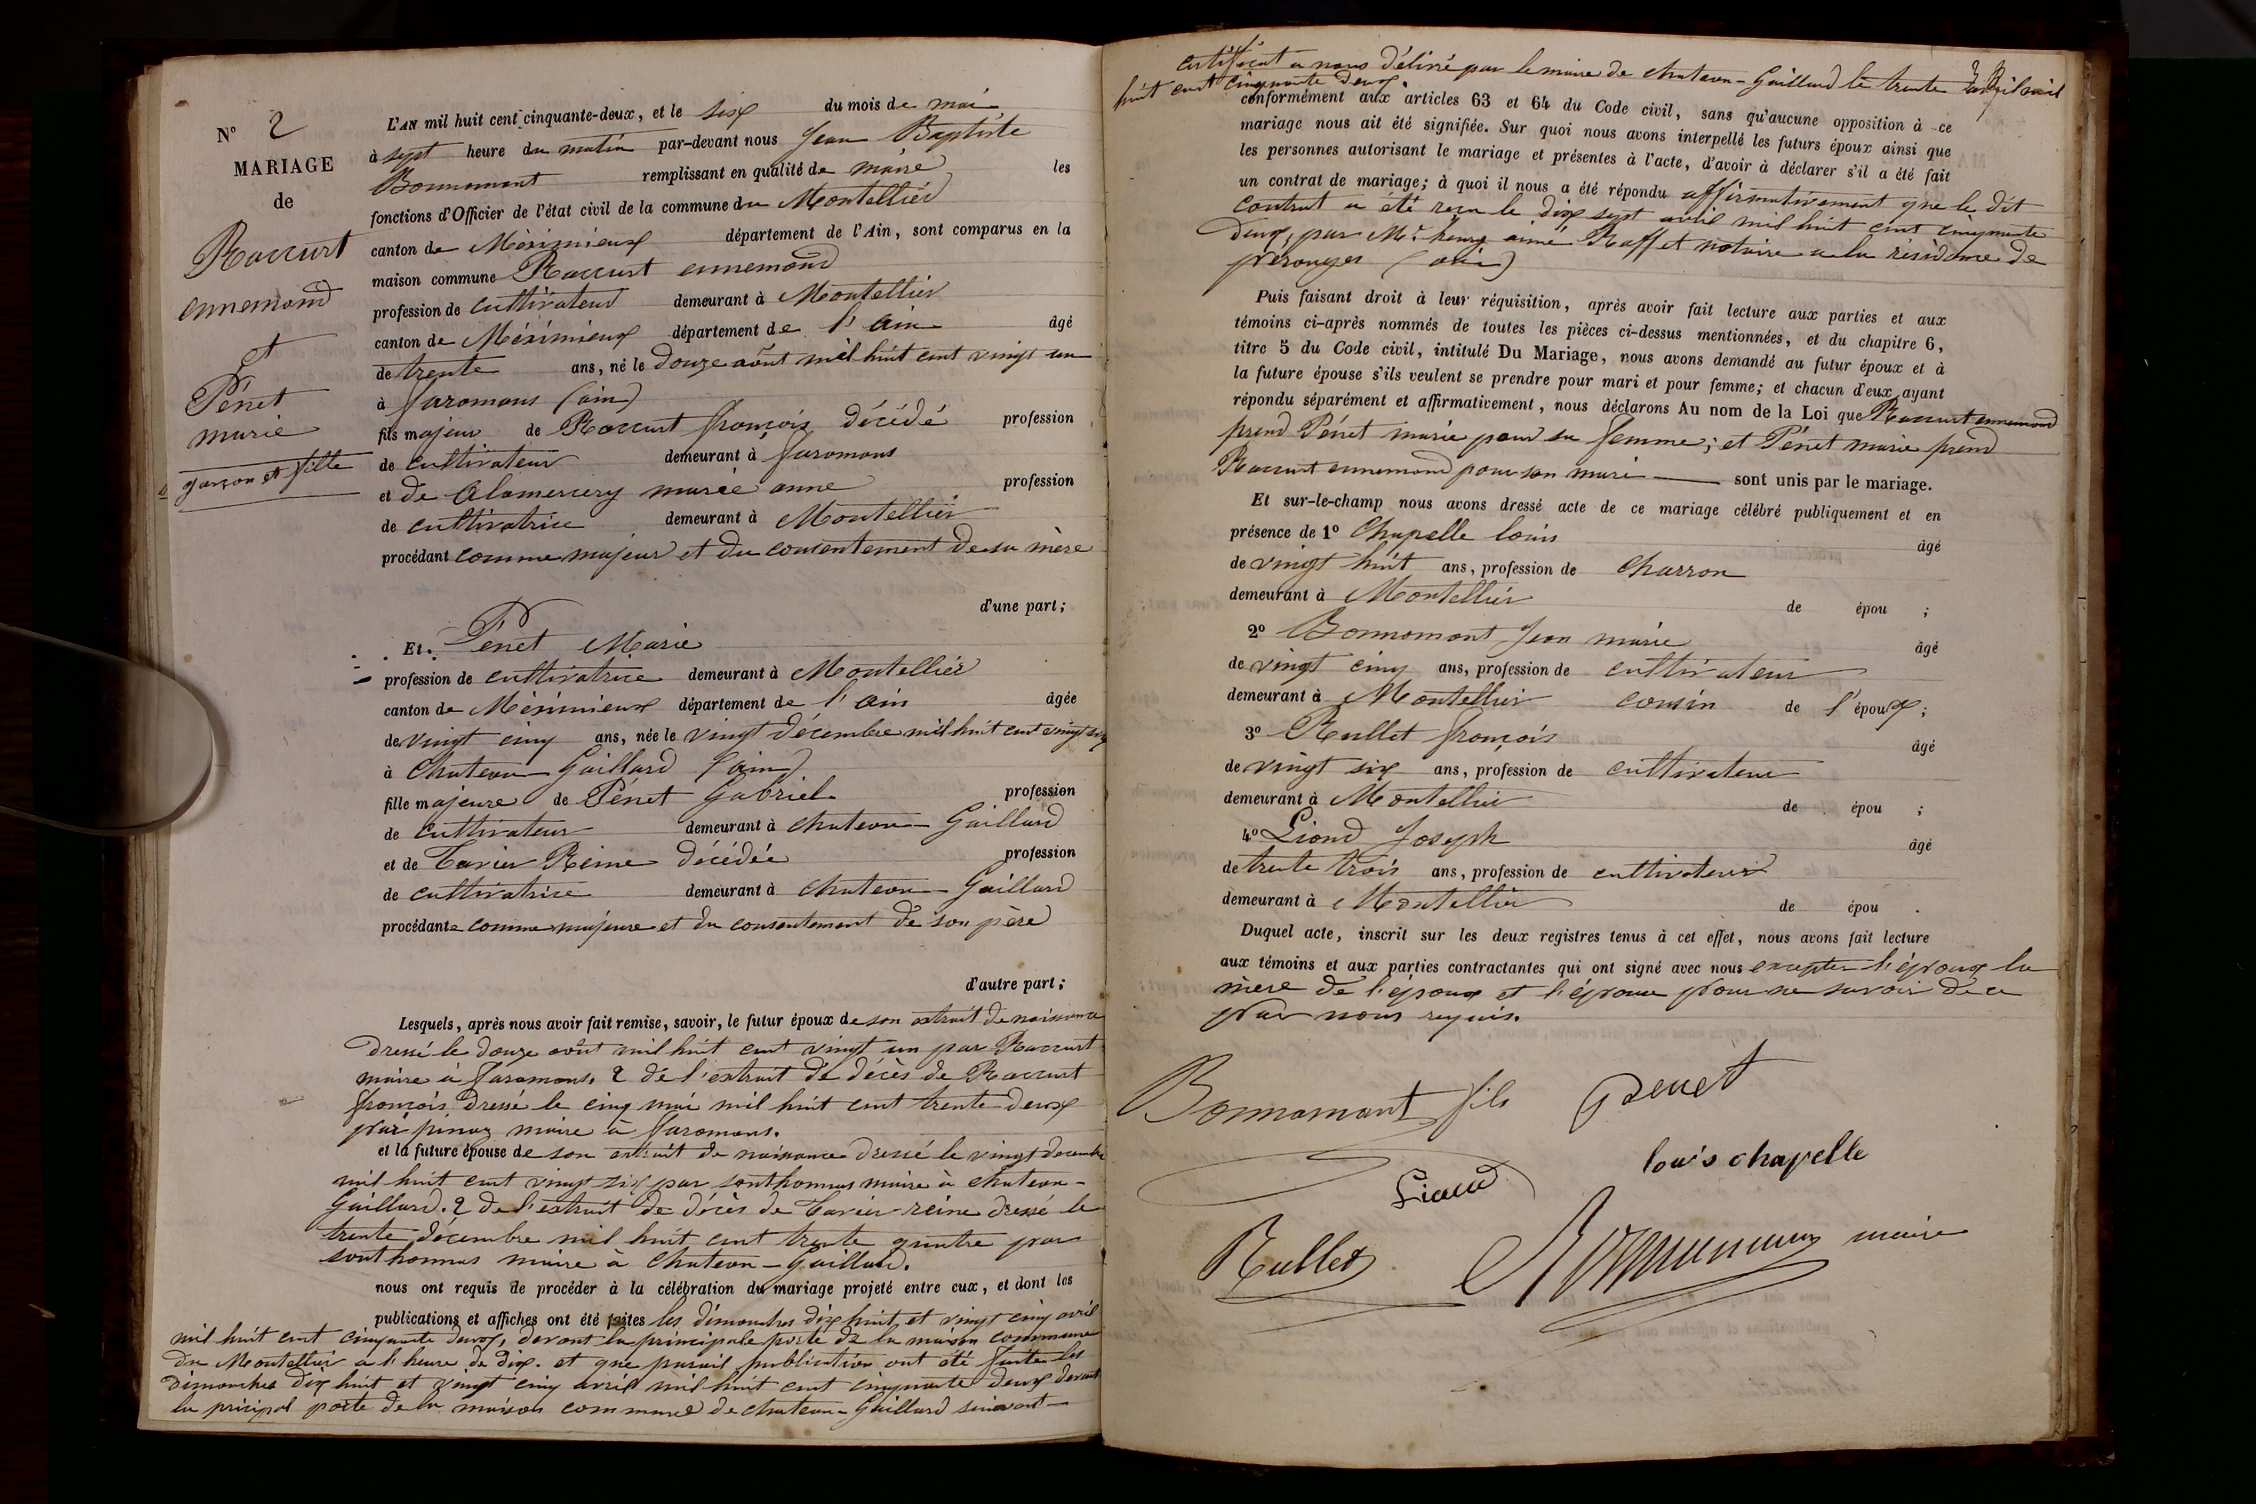 N° 2
MARIAGE
de
Raccurt
ennemond
et
Pénet
marie
garçon et fille
L'AN mil huit cent cinquante-deux, et le six du mois de mai
à sept heure du matin par-devant nous Jean Baptiste
Bonnamant remplissant en qualité de maire les
fonctions d'Officier de l'état civil de la commune du Montellier
canton de Méximieux département de l'Ain, sont comparus en la
maison commune Raccurt ennemond
profession de cultivateur demeurant à Montellier
canton de Méximieux département de l'ain âgé
de trente ans, né le douze août mil huit cent vingt un
à faramans (ain)
fils majeur de Raccurt françois décédé profession
de cultivateur demeurant à faramans
et de Alamercery marie anne profession
de cultivatrice demeurant à Montellier
procédant comme majeur et du consentement de sa mère
d'une part;
Et Pénet Marie
profession de cultivatrice demeurant à Montellier
canton de Méximieux département de l'ain âgée
de vingt cinq ans, née le vingt décembre mil huit cent vingt six
à Chateau-Gaillard (ain)
fille majeure de Pénet Gabriel profession
de cultivateur demeurant à chateau-Gaillard
et de Tavier Reine décédée profession
de cultivatrice demeurant à chateau-Gaillard
procédante comme majeure et du consentement de son père
d'autre part;
Lesquels, après nous avoir fait remise, savoir, le futur époux de son extrait de naissance
dressé le douze août mil huit cent vingt un par Raccurt
maire à faramans. 2 de l'extrait de décès de Raccurt
françois dressé le cinq mai mil huit cent trente deux
par maire à faramans.
et la future épouse de son extrait de naissance dressé le vingt décembre
mil huit cent vingt six par sonthonnas maire à chateau-
Gaillard. 2 de l'extrait de décès de Tavier reine dressé le
trente décembre mil huit cent trente quatre par
sonthonnas maire à chateau-Gaillard.
nous ont requis de procéder à la célébration du mariage projeté entre eux, et dont les
publications et affiches ont été faites les dimanches dix huit et vingt cinq avril
mil huit cent cinquante deux, devant la principale porte de la maison commune
du Montellier a l'heure de dix. et que pareil publication ont été faite les
dimanches dix huit et vingt cinq avril mil huit cent cinquante deux devant
la pricipal porte de la maison commune de chateau-Gaillard suivant
certificat a nous délivré par le maire de chateau-Gaillard le trente avril mil
huit cent cinquante deux.
conformément aux articles 63 et 64 du Code civil, sans qu'aucune opposition à ce
mariage nous ait été signifiée. Sur quoi nous avons interpellé les futurs époux ainsi que
les personnes autorisant le mariage et présentes à l'acte, d'avoir à déclarer s'il a été fait
un contrat de mariage; à quoi il nous a été répondu affirmativement que le dit
contrat a été reçu le dix sept avril mil huit cent cinquante
deux, par Mr henry aimé Raffet notaire a la résidence de
perouges (ain)
Puis faisant droit à leur réquisition, après avoir fait lecture aux parties et aux
témoins ci-après nommés de toutes les pièces ci-dessus mentionnées, et du chapitre 6,
titre 5 du Code civil, intitulé Du Mariage, nous avons demandé au futur époux et à
la future épouse s'ils veulent se prendre pour mari et pour femme; et chacun d'eux ayant
répondu séparément et affirmativement, nous déclarons Au nom de la Loi que Raccurt ennemond
prend Pénet marie pour sa femme; et Pénet marie prend
Raccurt ennemond pour son mari sont unis par le mariage.
Et sur-le-champ nous avons dressé acte de ce mariage célébré publiquement et en
présence de 1° Chapelle louis âgé
de vingt huit ans, profession de charron
demeurant à Montellier de épou ;
2° Bonnamant Jean marie âgé
de vingt cinq ans, profession de cultivateur
demeurant à Montellier cousin de l'époux;
3° Rullet françois âgé
de vingt six ans, profession de cultivateur
demeurant à Montellier de épou ;
4° Liond Joseph âgé
de trente trois ans, profession de cultivateur
demeurant à Montellier de épou .
Duquel acte, inscrit sur les deux registres tenus à cet effet, nous avons fait lecture
aux témoins et aux parties contractantes qui ont signé avec nous excepter l'époux la
mère de l'époux et l'épouse pour ne savoir de ce
par nous requis.
Bonnamant fils penet
louis chapelle
Liond
Rullet Bonnamant maire